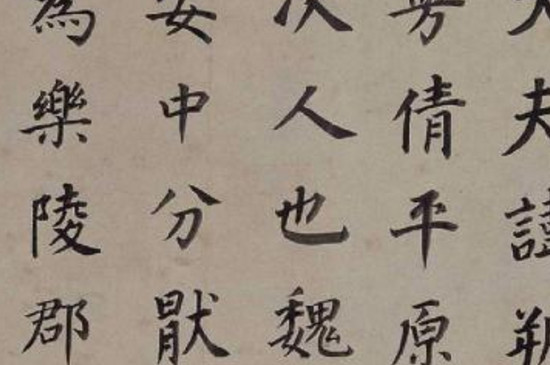 大夫諱朔
倩平原
次人也魏
安中分猒
為樂陵郡